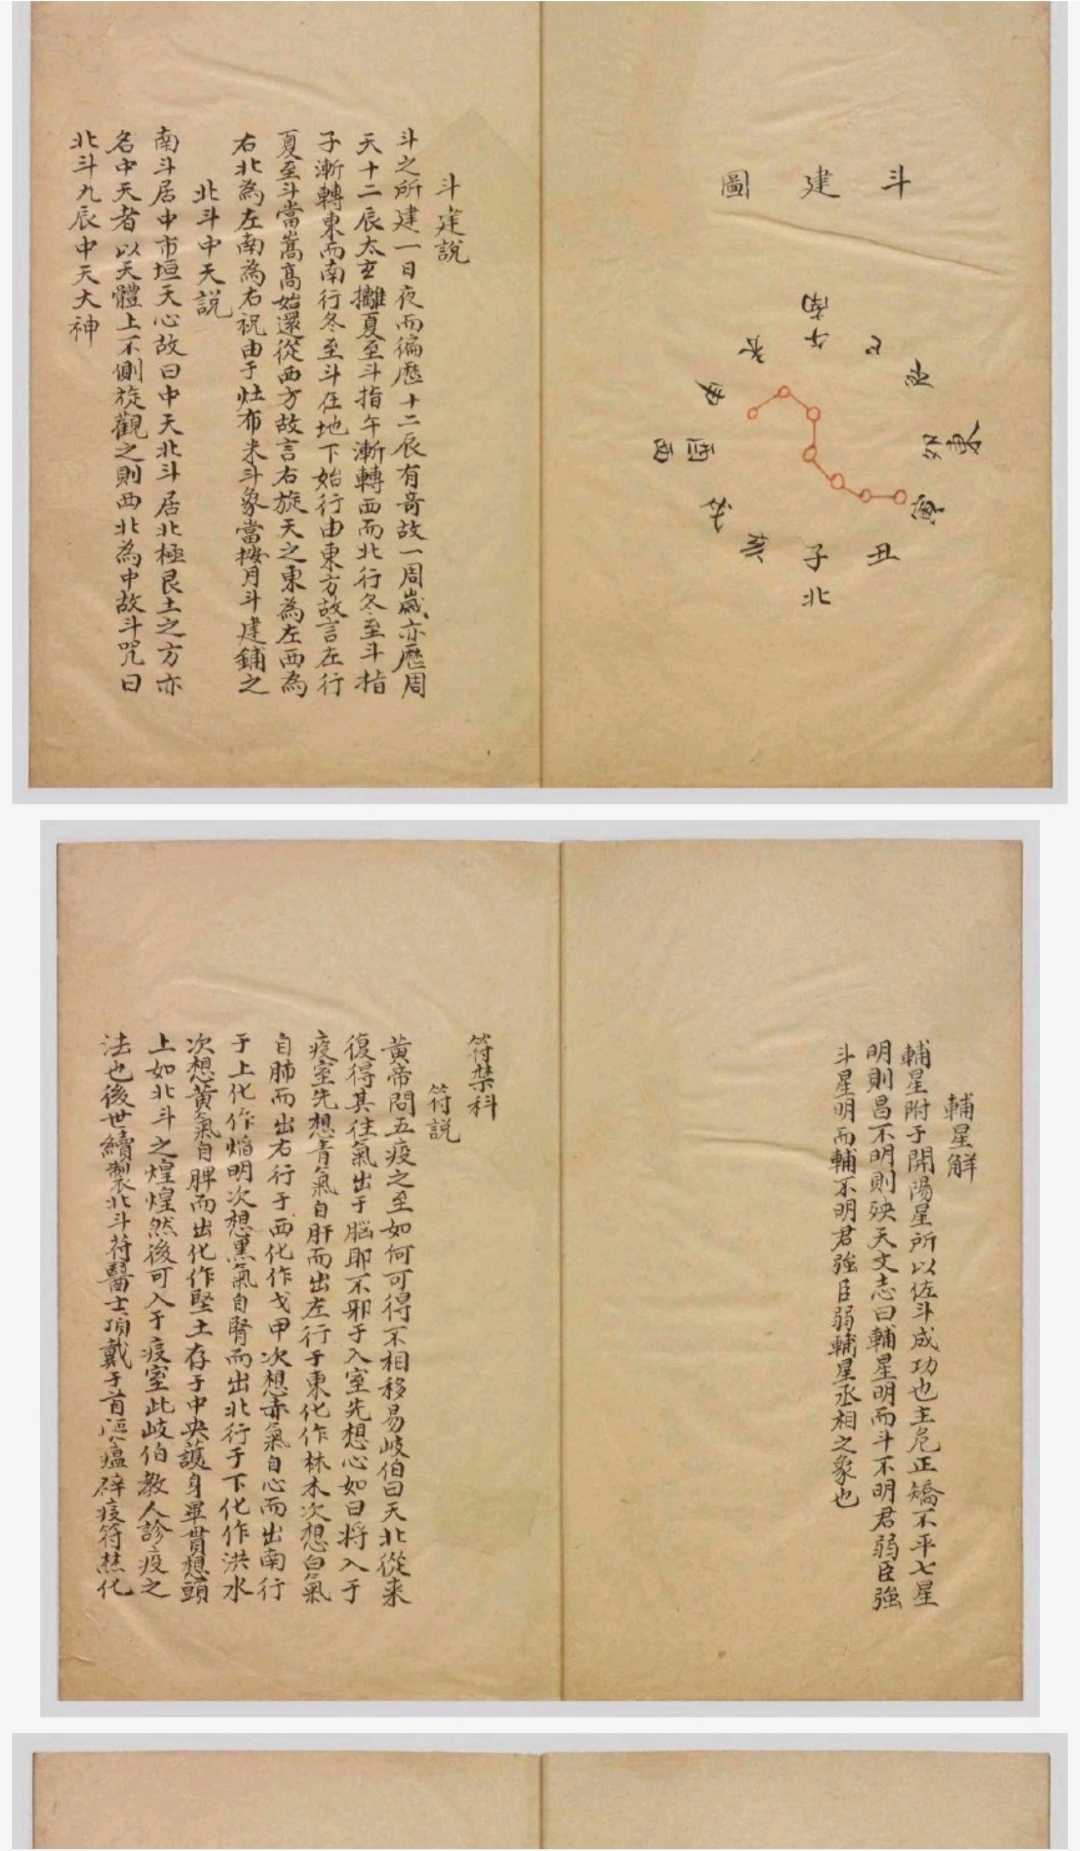 斗建圖
南
午
未
巳
申
辰
酉西
卯東
戌
寅
亥
丑
子
北
斗建說
斗之所建一日夜而徧歷十二辰有奇故一周歲亦歷周
天十二辰太玄攡夏至斗指午漸轉西而北行冬至斗指
子漸轉東而南行冬至斗在地下始行由東方故言左行
夏至斗當嵩高始還從西方故言右旋天之東為左西為
右北為左南為右祝由于灶布米斗象當按月斗建鋪之
北斗中天説
南斗居中市垣天心故曰中天北斗居北極艮土之方亦
名中天者以天體上不側旋觀之則西北為中故斗咒曰
北斗九辰中天大神
輔星解
輔星附于開陽星所以佐斗成功也主危正矯不平七星
明則昌不明則殃天文志曰輔星明而斗不明君弱臣強
斗星明而輔不明君強臣弱輔星丞相之象也
符禁科
符説
黃帝問五疫之至如何可得不相移易岐伯曰天北從来
復得其往氣出于腦耶不邪于入室先想心如日将入于
疫室先想青氣自肝而出左行于東化作林木次想白氣
自肺而出右行于西化作戈甲次想赤氣自心而出南行
于上化作焰明次想黑氣自腎而出北行于下化作洪水
次想黃氣自脾而出化作堅土存于中央護身畢貫想頭
上如北斗之煌煌然後可入于疫室此岐伯教人診疫之
法也後世續製北斗符醫士頂戴于首 瘟辟疫符 化